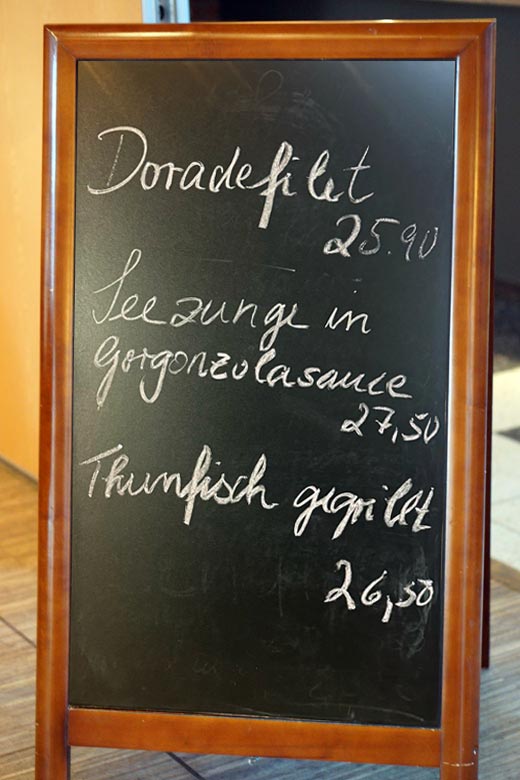 Doradefilet
25.90
Seezunge in
Gorgonzolasauce
27,50
Thunfisch gegrillt
26,50